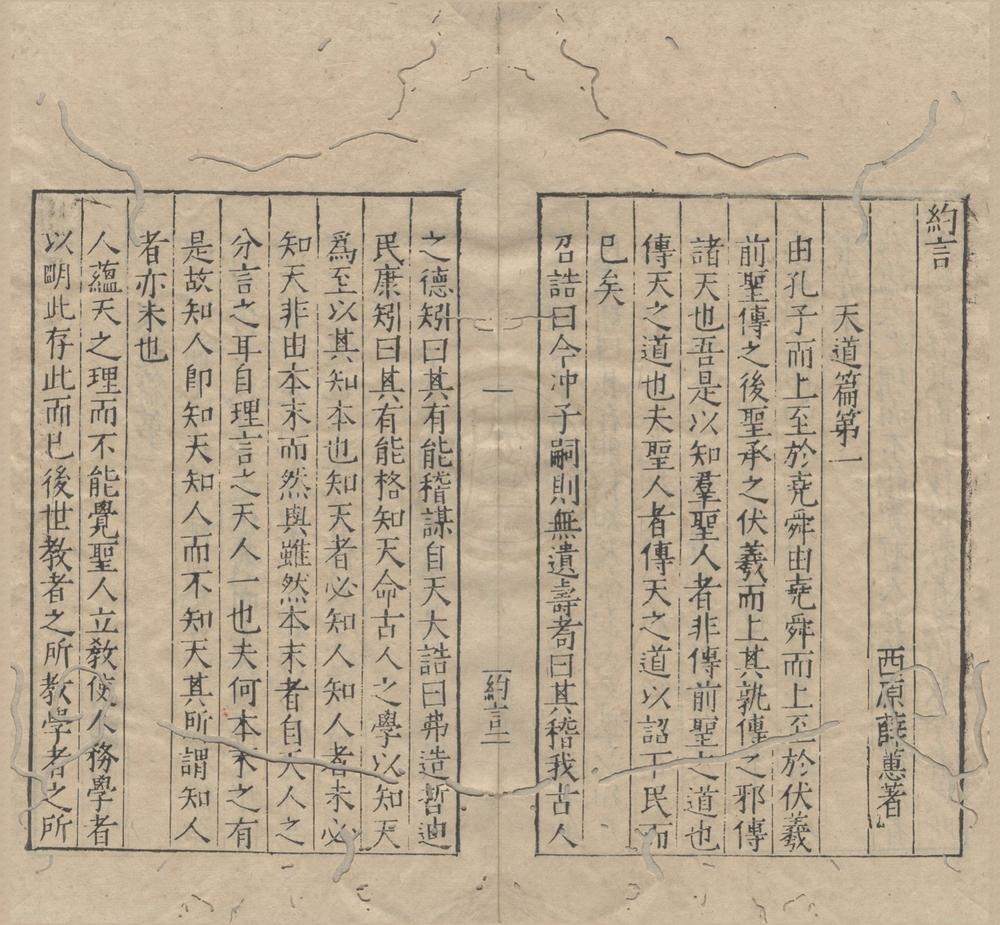 約言
西原薛蕙著
天道篇第一
由孔子而上至於堯舜由堯舜而上至於伏羲
前聖傳之後聖承之伏羲而上其孰傳之邪傳
諸天也吾是以知羣聖人者非傳前聖之道也
傳天之道也夫聖人者傳天之道以詔下民而
已矣
召誥曰今冲子嗣則無遺壽耇曰其稽我古人
一
約言二
之德矧曰其有能稽謀自天大誥曰弗造哲迪
民康矧曰其有能格知天命古人之學以知天
爲至以其知本也知天者必知人知人者未必
知天非由本末而然與雖然本末者自天人之
分言之耳自理言之天人一也夫何本末之有
是故知人即知天知人而不知天其所謂知人
者亦未也
人蘊天之理而不能覺聖人立教使人務學者
以明此存此而已後世教者之所教學者之所